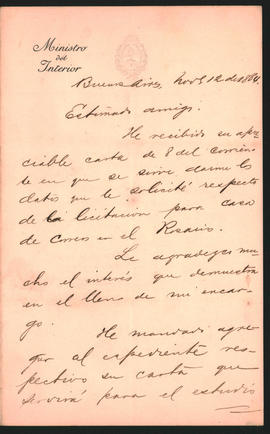 Ministro
del
Interior
Buenos Aires, 12 de
Estimado amigo:
He recibido su apre
ciable carta de 8 del corrien
te en que se sirve darme los
datos que le solicité respecto
de la licitación para casa
de Correos en el Rosario.
Le agradezco mu
cho el interés que demuestra
en el lleno de mi encar
go.
He mandado agre
gar al expediente res
pectivo su carta que
servirá para el estudio